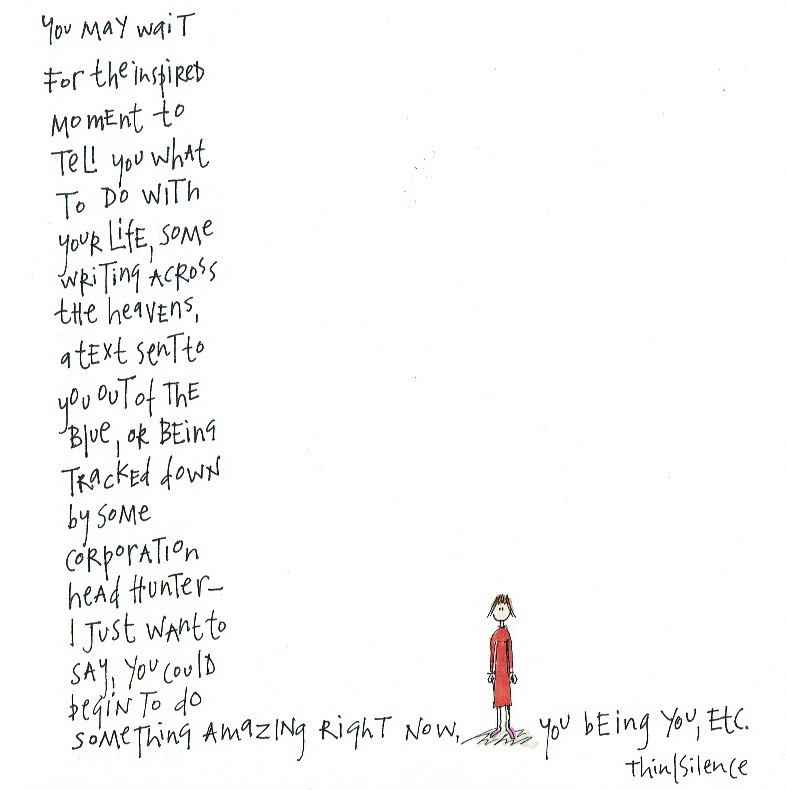 You may wait
For the inspired
moment to
Tell you what
To Do with
your life, some
writing across
the heavens,
a text sent to
you out of the
Blue, or being
Tracked down
by some
corporation
head Hunter—
I Just want to
say, you could
begin to do
something amazing right now, you being you, etc.
Thin|Silence